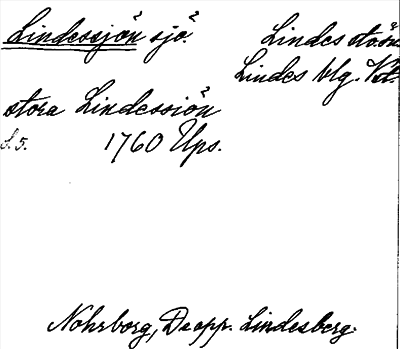 Lindessjön sjö.
Lindes sta.ön.
Lindes blg. Vst.
stora Lindessiön
S. 5. 1760 Ups.
Nohrborg, De opp. Lindesberg.